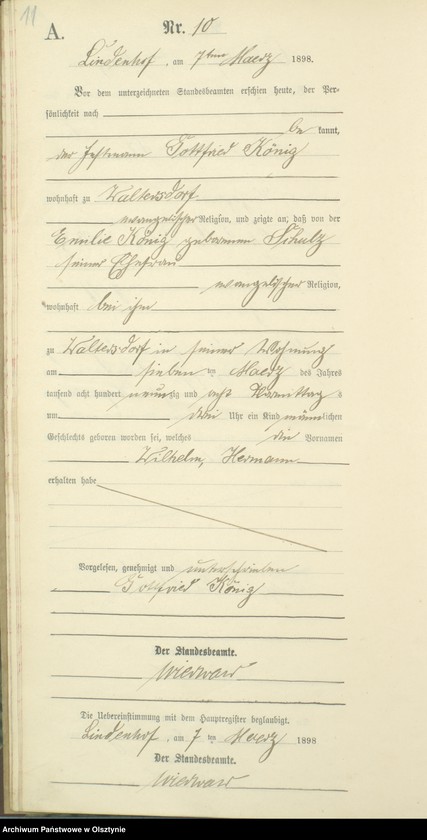 11
A.
Nr. 10
Lindenhof, am 7ten Maerz 1898.
Vor dem unterzeichneten Standesbeamten erschien heute, der Per-
sönlichkeit nach
be kannt,
der Gottfried König
wohnhaft zu Waltersdorf
evangelischer Religion, und zeigte an, daß von der
Emilie König geborenen Schulz
seiner Ehefrau
evangelischer Religion,
wohnhaft bei ihm
zu Waltersdorf in seiner Wohnung
am sieben ten Maerz des Jahres
tausend acht hundert neunzig und acht Vormittag s
um drei Uhr ein Kind männlichen
Geschlechts geboren worden sei, welches die Vornamen
Wilhelm, Hermann
erhalten habe
Vorgelesen, genehmigt und unterschrieben
Gottfried König
Der Standesbeamte.
Die Uebereinstimmung mit dem Hauptregister beglaubigt.
Lindenhof, am 7 ten Maerz 1898
Der Standesbeamte.
Archiwum Państwowe w Olsztynie